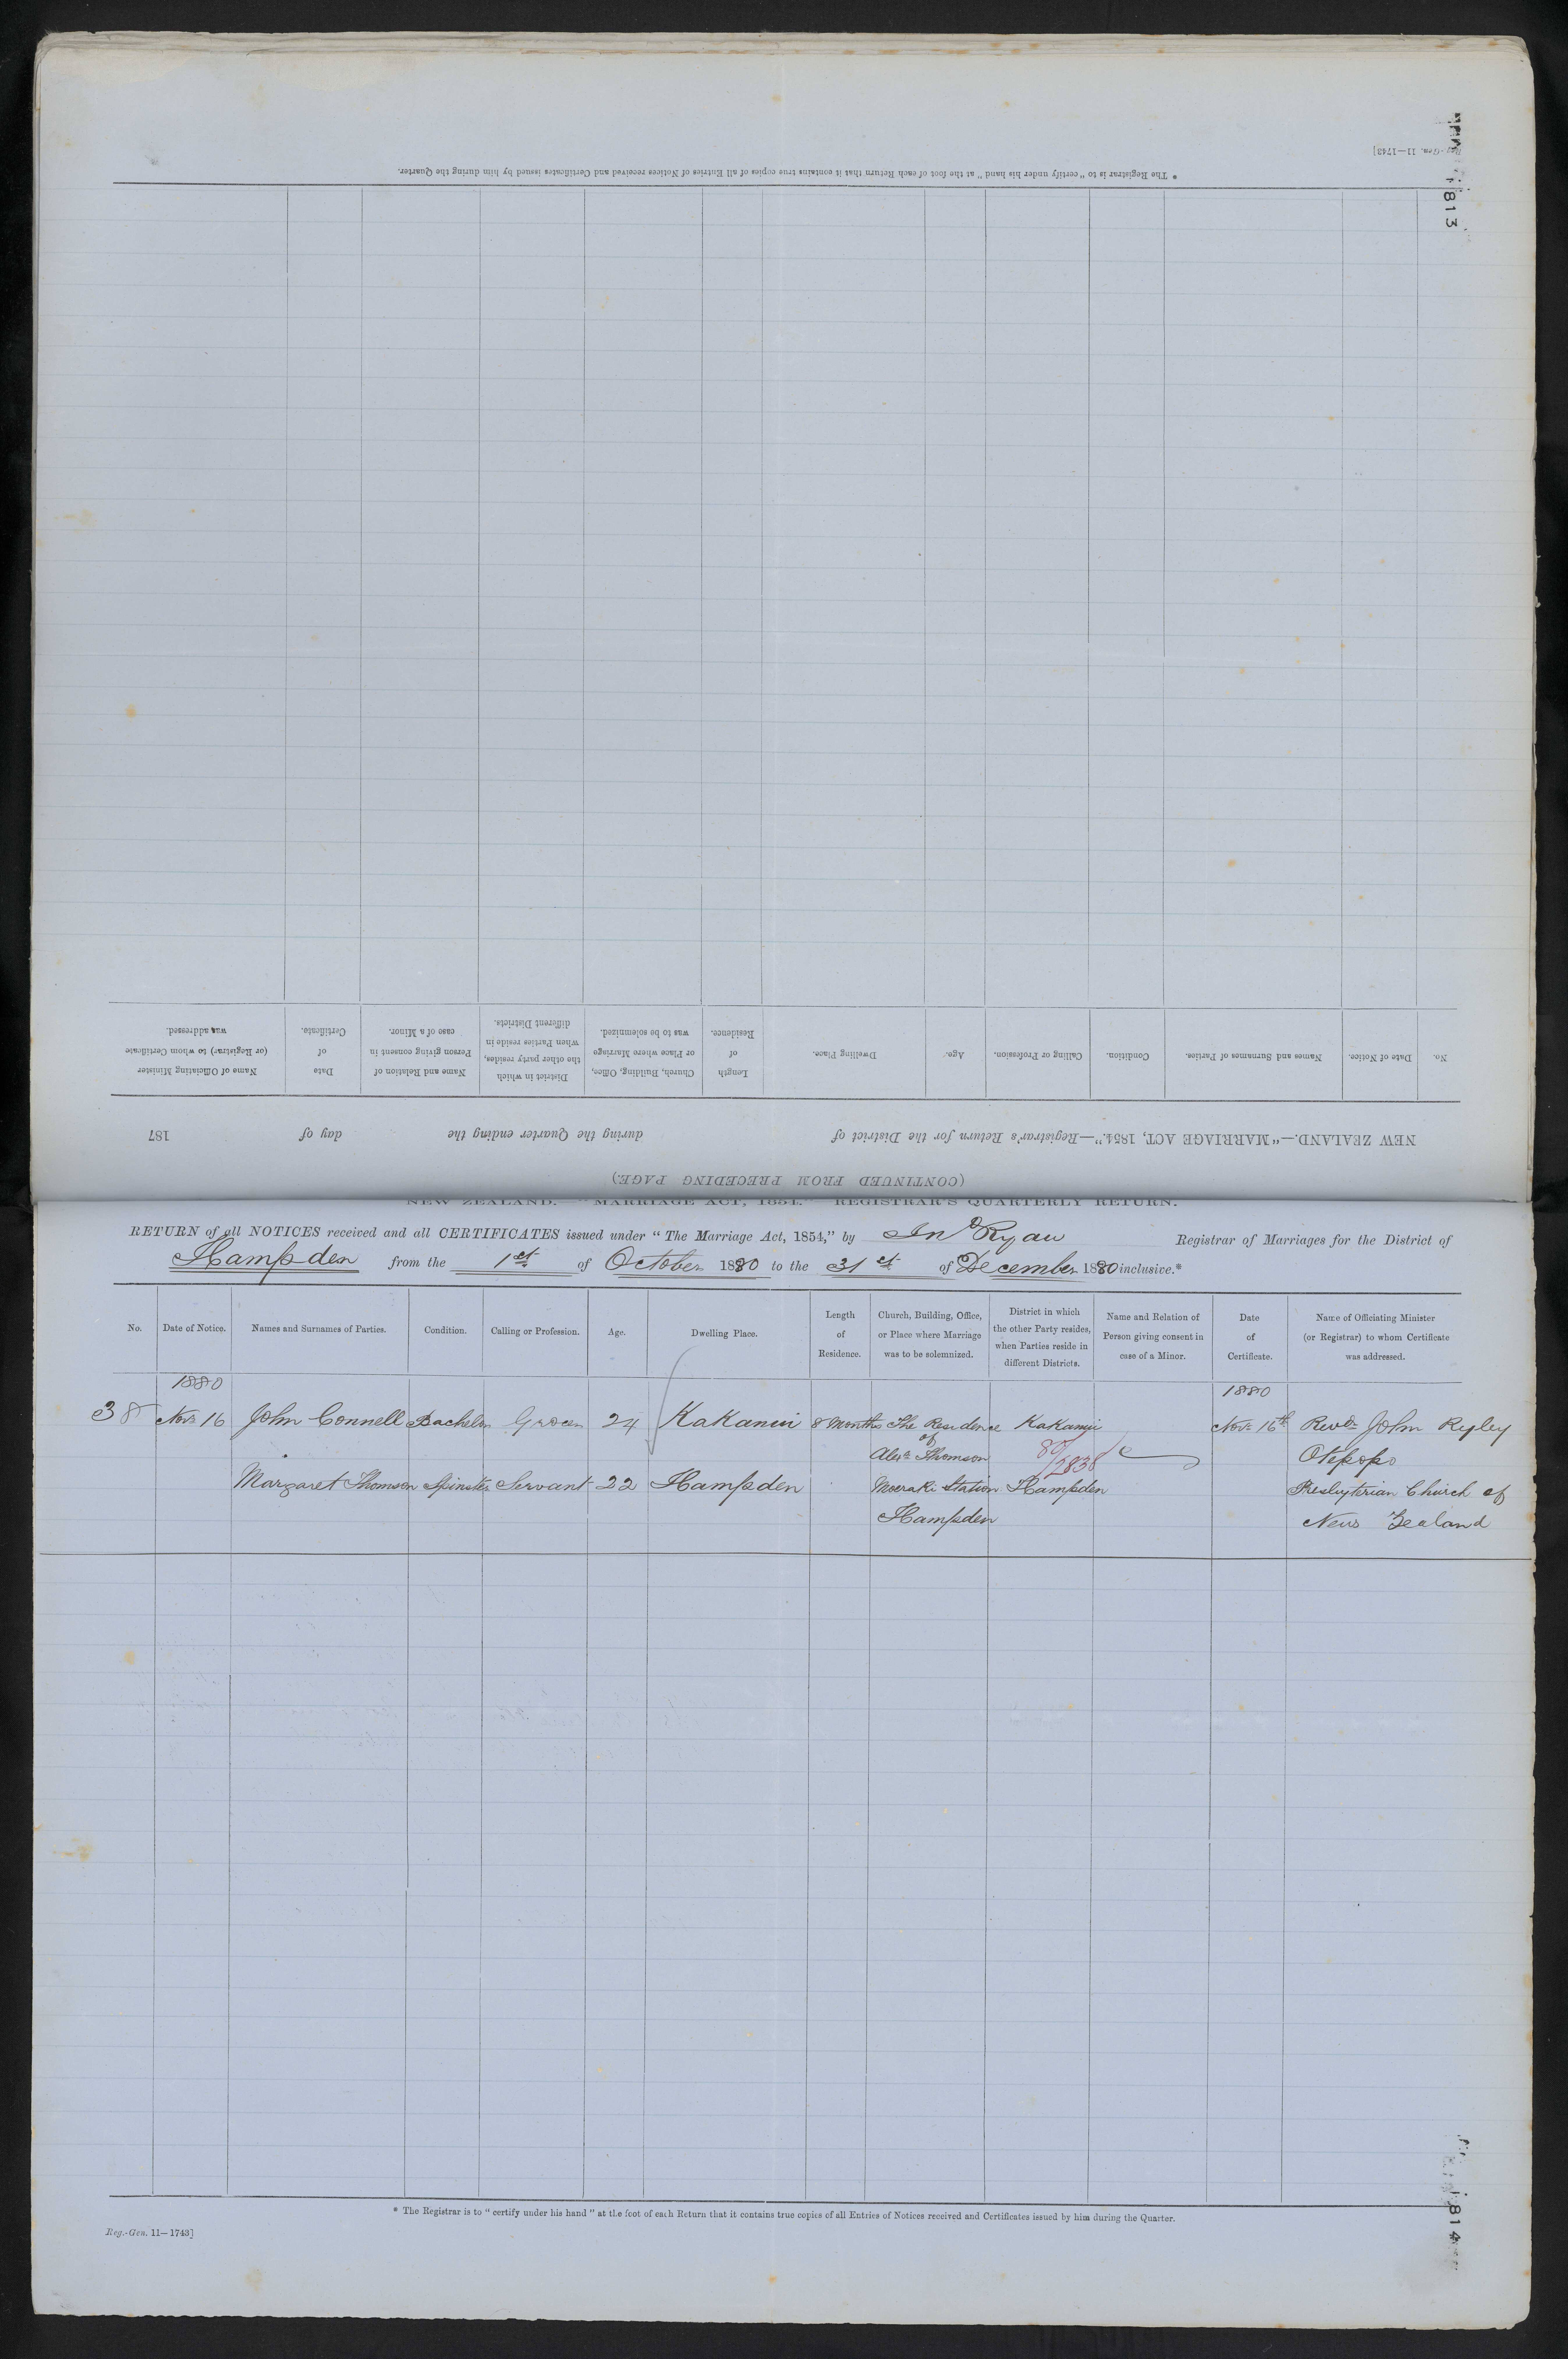 Reg.-Gen. 11—1743]
1813
* The Registrar is to "certify under his hand" at the foot of each Return that it contains true copies of all Entries of Notices received and Certificates issued by him during the Quarter.
(CONTINUED FROM PRECEDING PAGE.)
NEW ZEALAND.—"MARRIAGE ACT, 1854."—Registrar's Return for the District of during the Quarter ending the day of 187
No. Date of Notice. Names and Surnames of Parties. Condition. Calling or Profession. Age. Dwelling Place. Length of Residence. Church, Building, Office, or Place where Marriage was to be solemnized. District in which the other party resides, when Parties reside in different Districts. Name and Relation of Person giving consent in case of a Minor. Date of Certificate. Name of Officiating Minister (or Registrar) to whom Certificate was addressed.
NEW ZEALAND.—"MARRIAGE ACT, 1854." REGISTRAR'S QUARTERLY RETURN.
RETURN of all NOTICES received and all CERTIFICATES issued under "The Marriage Act, 1854," by Jno Ryan Registrar of Marriages for the District of
Hampden from the 1st of October 1880 to the 31st of December 1880 inclusive.*
No. Date of Notice. Names and Surnames of Parties. Condition. Calling or Profession. Age. Dwelling Place. Length of Residence. Church, Building, Office, or Place where Marriage was to be solemnized. District in which the other Party resides, when Parties reside in different Districts. Name and Relation of Person giving consent in case of a Minor. Date of Certificate. Name of Officiating Minister (or Registrar) to whom Certificate was addressed.
1880 1880
38 Novr 16 John Connell Bachelor Grocer 24 Kakanui 8 Months The Residence Kakanui Novr 16th Revd John Ryley
of
Alexr Thomson 80/2838 Otepopo
Margaret Thomson Spinster Servant 22 Hampden Moeraki Station Hampden Presbyterian Church of
Hampden New Zealand
* The Registrar is to "certify under his hand" at the foot of each Return that it contains true copies of all Entries of Notices received and Certificates issued by him during the Quarter.
Reg.-Gen. 11—1743]
1814